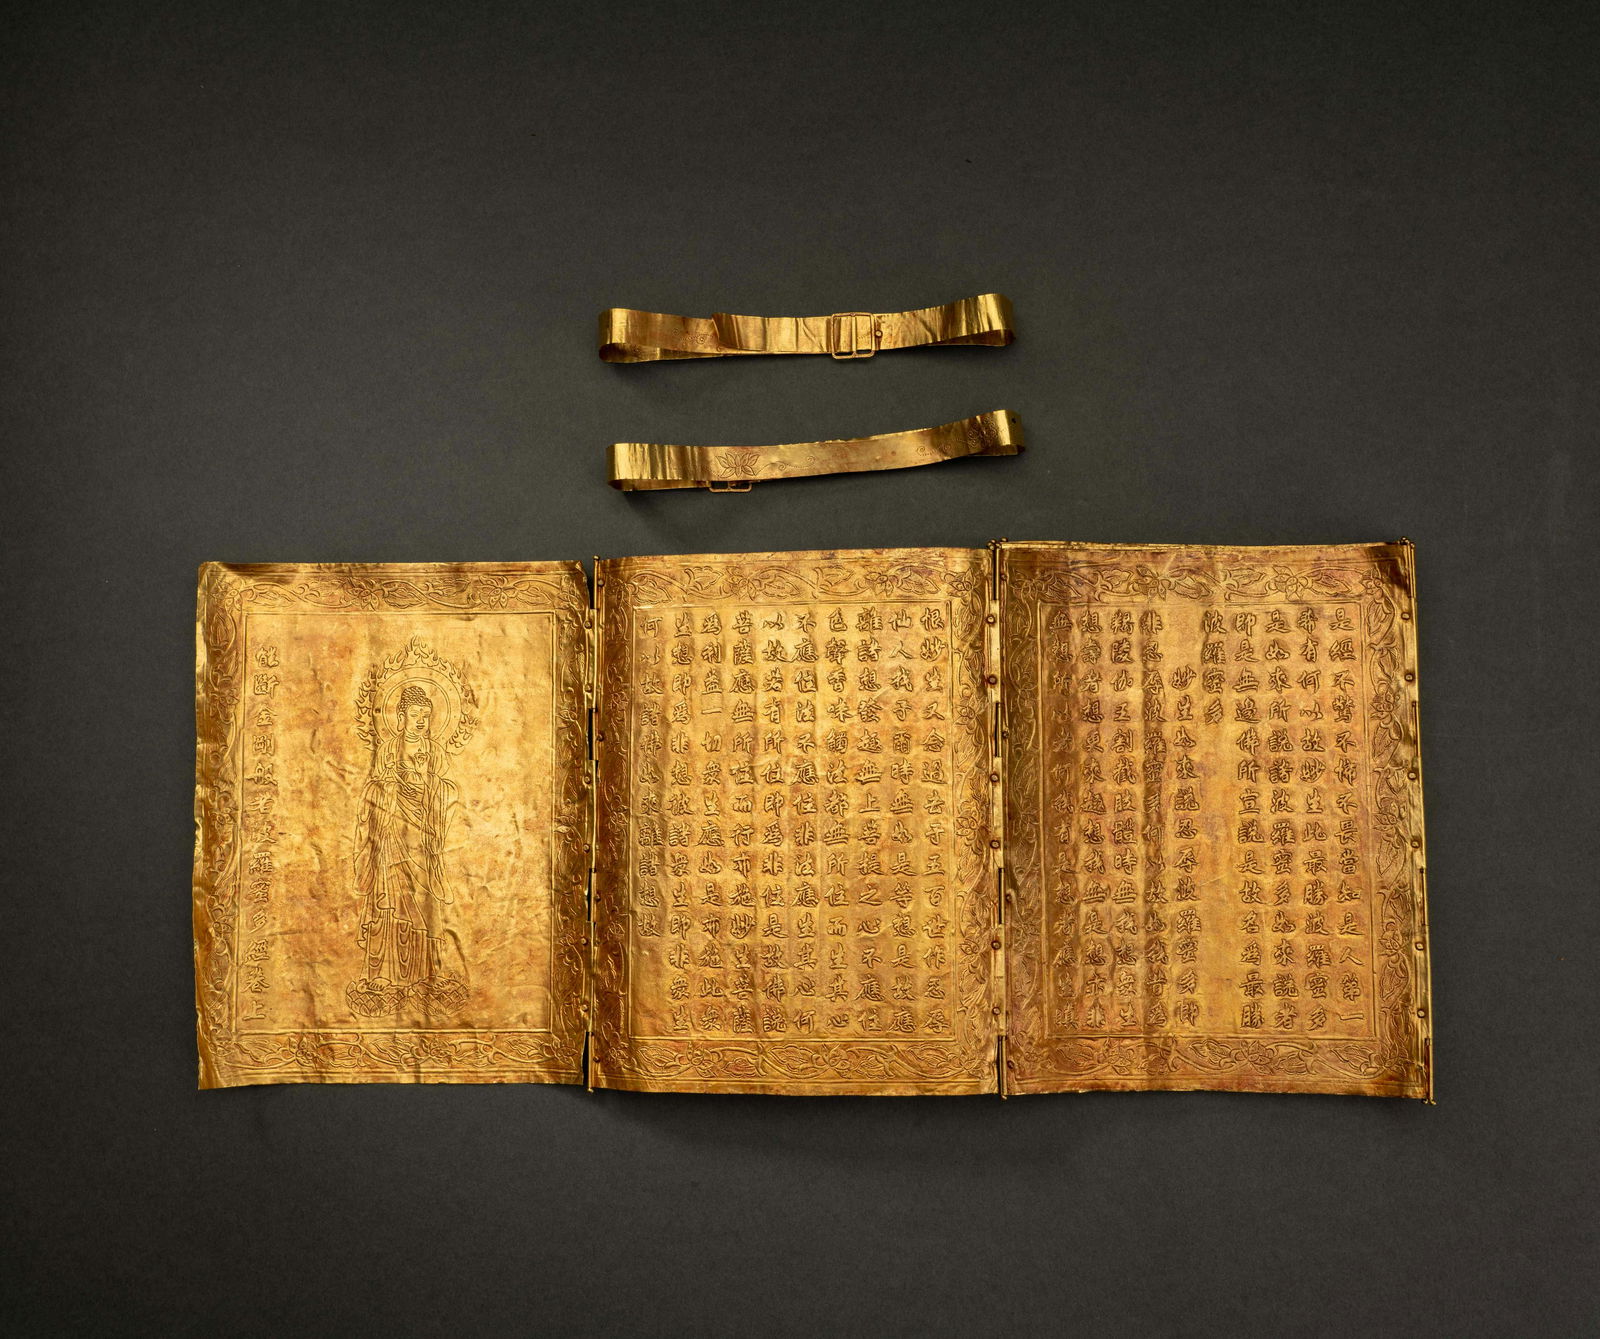 是經不驚不怖不畏當知是人第一
希有何以故妙生此最勝波羅蜜多
是如來所說諸波羅蜜多如來說者
即是無邊佛所宣說是故名爲最勝
波羅蜜多
妙生如來說忍辱波羅蜜多即
非忍辱波羅蜜多何以故如我昔爲
羯陵伽王割截肢體時無我想衆生
想壽者想更求趣想我無是想亦非
無想所以者何我有是想者應生瞋
恨妙生又念過去于五百世作忍辱
仙人我于爾時無如是等想是故應
離諸想發趣無上菩提之心不應住
色聲香味觸法都無所住而生其心
不應住法不應住非法應生其心何
以故若有所住即爲非住是故佛說
菩薩應無所住而行布施妙生菩薩
爲利益一切衆生應如是布施此衆
生想即爲非想彼諸衆生即非衆生
何以故諸佛如來離諸想故
能斷金剛般若波羅蜜多經卷上